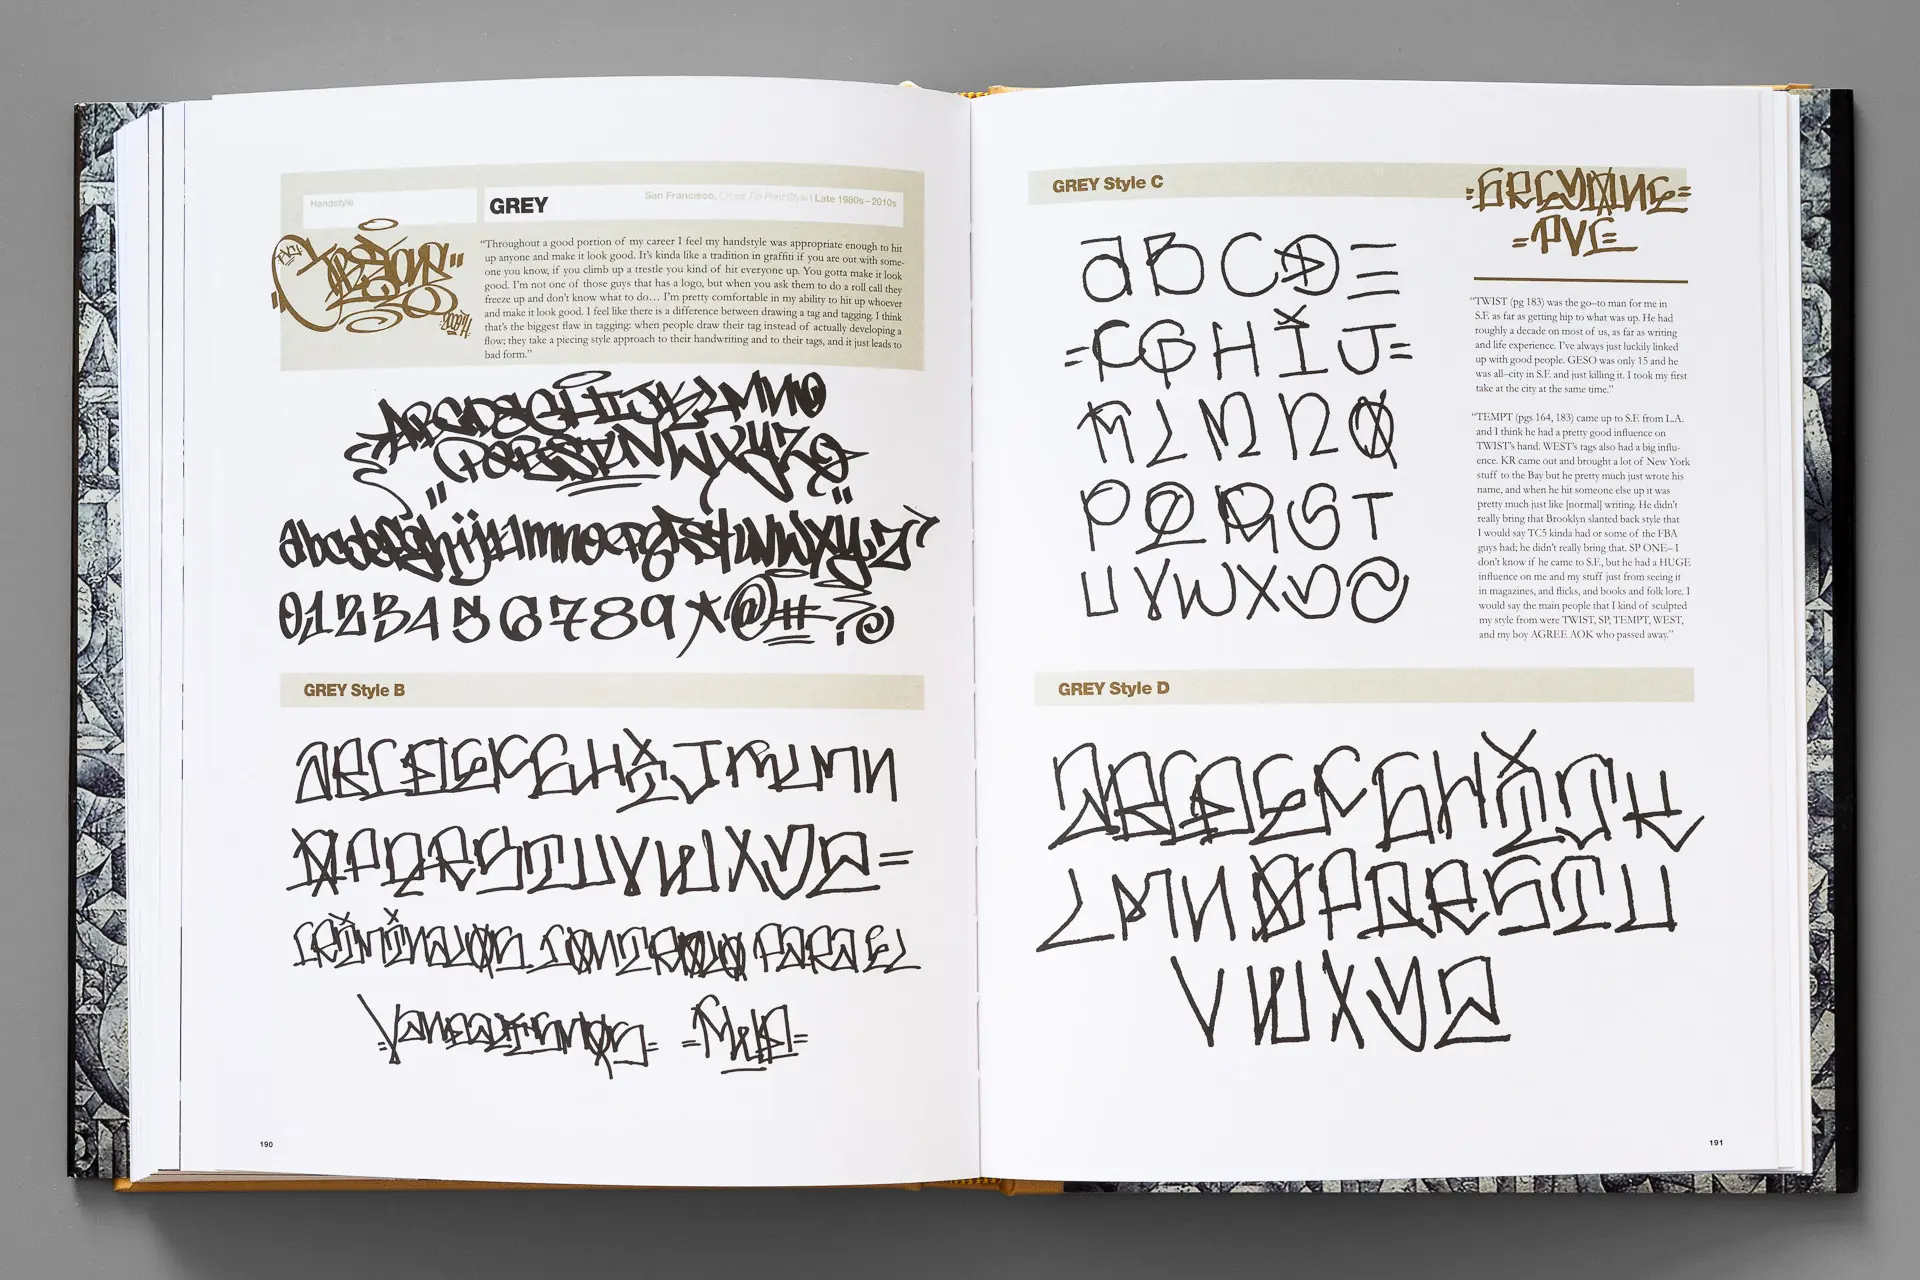 Handstyle
GREY
San Francisco, Chisel Tip Print Style | Late 1980s–2010s
“Throughout a good portion of my career I feel my handstyle was appropriate enough to hit
up anyone and make it look good. It’s kinda like a tradition in graffiti if you are out with some-
one you know, if you climb up a trestle you kind of hit everyone up. You gotta make it look
good. I’m not one of those guys that has a logo, but when you ask them to do a roll call they
freeze up and don’t know what to do… I’m pretty comfortable in my ability to hit up whoever
and make it look good. I feel like there is a difference between drawing a tag and tagging. I think
that’s the biggest flaw in tagging: when people draw their tag instead of actually developing a
flow; they take a piecing style approach to their handwriting and to their tags, and it just leads to
bad form.”
ABCDEFGHIJKLMNO
PQRSTUVWXYZ
abcdefghijklmnopqrstuvwxyz
0123456789*@#?
GREY Style B
ABCDEFGHIJKLMN
OPQRSTUVWXYZ=
190
GREY Style C
=GREYONE=
=PVE=
aBCDE
=FGHIJ=
KLMNO
PQRST
UVWXYZ
“TWIST (pg 183) was the go–to man for me in
S.F. as far as getting hip to what was up. He had
roughly a decade on most of us, as far as writing
and life experience. I’ve always just luckily linked
up with good people. GESO was only 15 and he
was all–city in S.F. and just killing it. I took my first
take at the city at the same time.”
“TEMPT (pgs 164, 183) came up to S.F. from L.A.
and I think he had a pretty good influence on
TWIST’s hand. WEST’s tags also had a big influ-
ence. KR came out and brought a lot of New York
stuff to the Bay but he pretty much just wrote his
name, and when he hit someone else up it was
pretty much just like [normal] writing. He didn’t
really bring that Brooklyn slanted back style that
I would say TC5 kinda had or some of the FBA
guys had; he didn’t really bring that. SP ONE– I
don’t know if he came to S.F., but he had a HUGE
influence on me and my stuff just from seeing it
in magazines, and flicks, and books and folk lore. I
would say the main people that I kind of sculpted
my style from were TWIST, SP, TEMPT, WEST,
and my boy AGREE AOK who passed away.”
GREY Style D
ABCDEFGHIJK
LMNOPQRSTU
VWXYZ
191